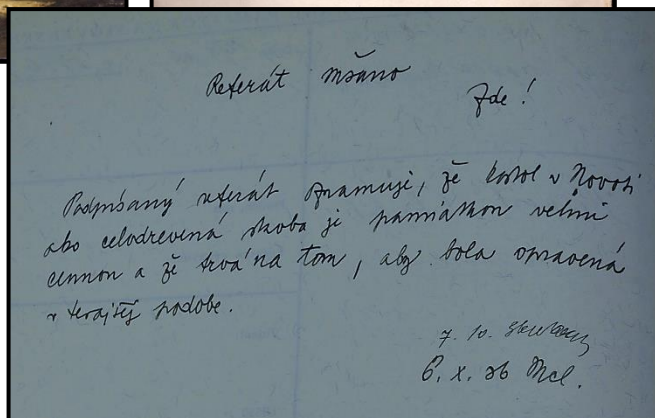 Referát
Zde!
Podpísaný referát oznamuje, že kostol v Novoti
ako celodrevená stavba je pamiatkou velmi
cennou a že trvá na tom, aby bola opravená
v terajšej podobe.
7. 10.
6. X. 36